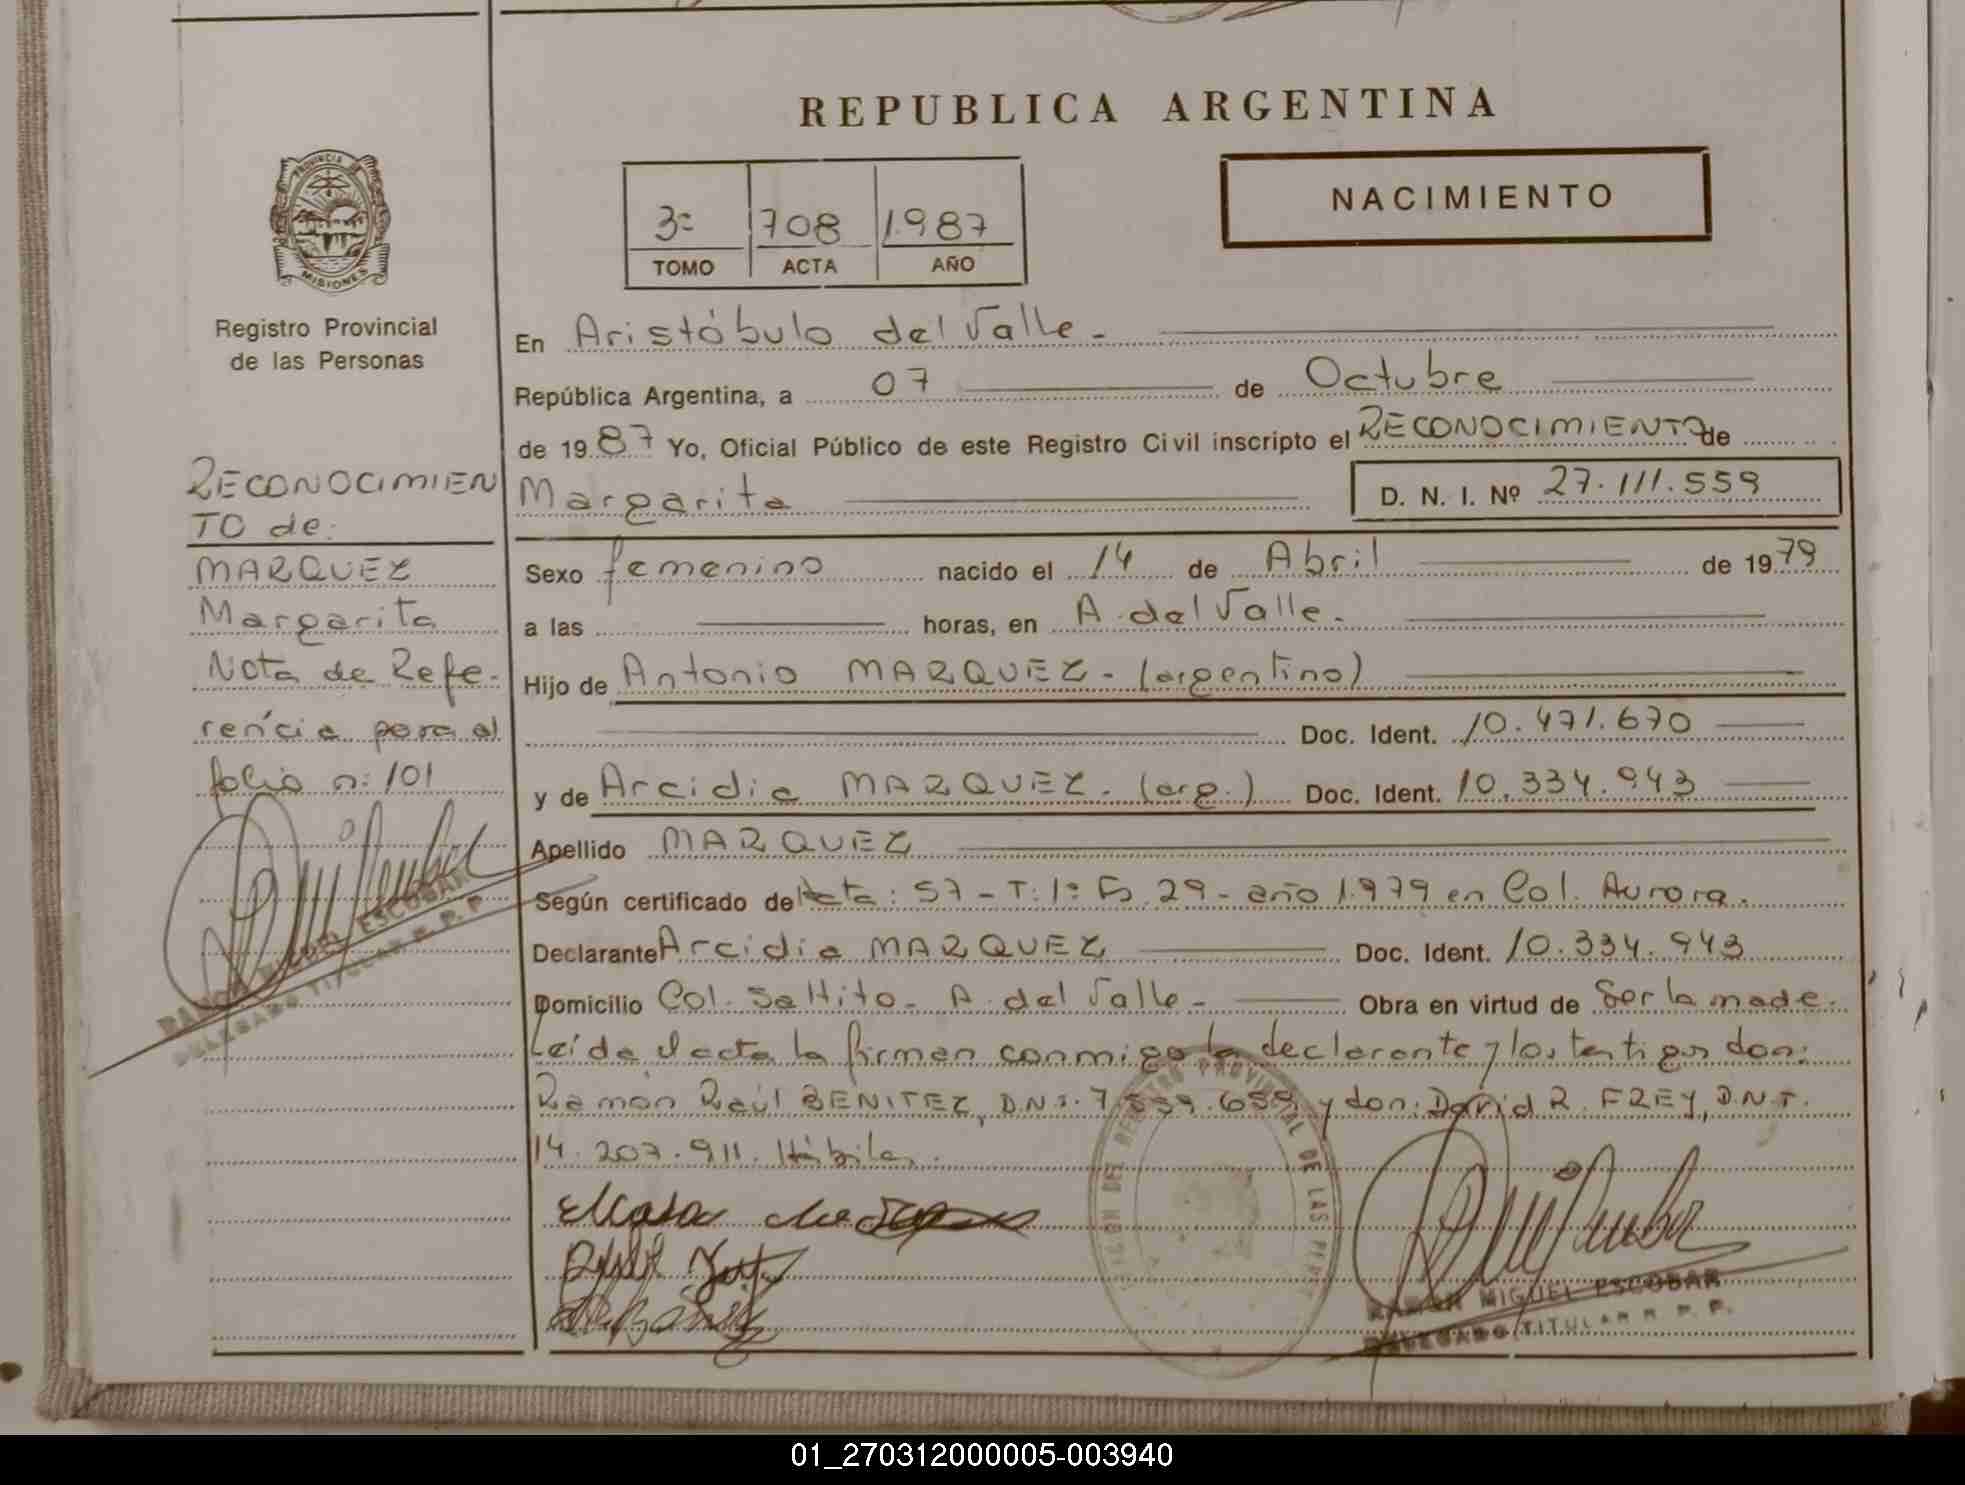 REPUBLICA ARGENTINA
PROVINCIA DE
MISIONES
Registro Provincial
de las Personas
3º 708 1.987
TOMO ACTA AÑO
NACIMIENTO
En Aristóbulo del Valle.-
República Argentina, a 07 de Octubre
de 19 87 Yo, Oficial Público de este Registro Civil inscripto el RECONOCIMIENTO de
Margarita D. N. I. Nº 27.111.559
Sexo femenino nacido el 14 de Abril de 19 79
a las horas, en A. del Valle.
Hijo de Antonio MARQUEZ - (argentino)
Doc. Ident. 10.471.670
y de Arcidia MARQUEZ. (arg.) Doc. Ident. 10.334.943
Apellido MARQUEZ
Según certificado de Acta: 57 - T: 1º Fº 29 - año 1.979 en Col. Aurora.
Declarante Arcidia MARQUEZ Doc. Ident. 10.334.943
Domicilio Col. Saltito - A. del Valle - Obra en virtud de Ser la madre.
Leída el acta la firman conmigo la declarante y los testigos don:
Ramón Raúl BENITEZ, D.N.I. 7.539.659 y don: David R. FREY, D.N.I.
14.207.911. Hábiles.
RAMON MIGUEL ESCOBAR
DELEGADO TITULAR R. P. P.
RECONOCIMIEN
TO de:
MARQUEZ
Margarita
Nota de Refe-
rencia pasa al
folio n: 101
RAMON MIGUEL ESCOBAR
DELEGADO TITULAR R. P. P.
01_270312000005-003940